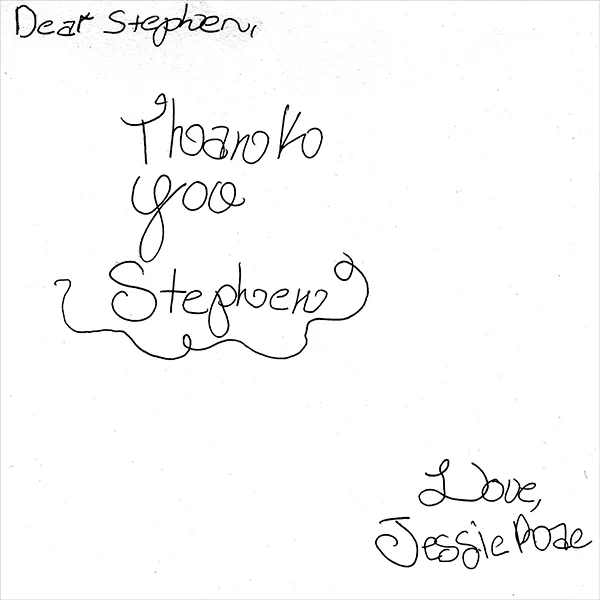 Dear Stephen,
Thank
you
Stephen
Love,
Jessie Rose